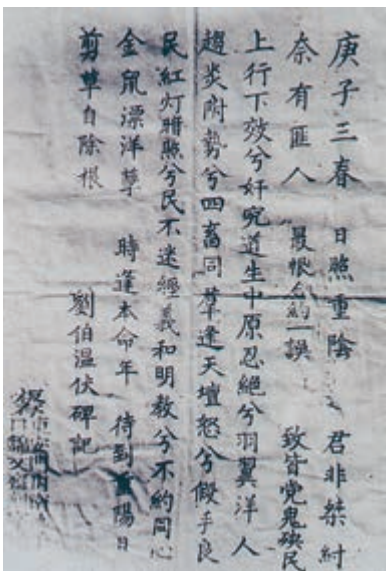 庚子三春 日照重陰 君非桀紂
奈有匪人 最恨和約一誤 致皆党鬼殃民
上行下效兮奸宄道生中原忍絕兮羽翼洋人
趨炎附勢兮四畜同羣逢天壇怒兮假手良
民紅灯暗照兮民不迷經義和明教兮不約同心
金鼠漂洋孽 時逢本命年 待到重陽日
剪草自除根
劉伯溫伏碑記